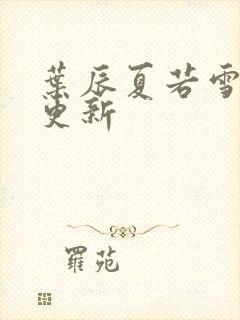 葉辰夏若雪
更新
羅苑